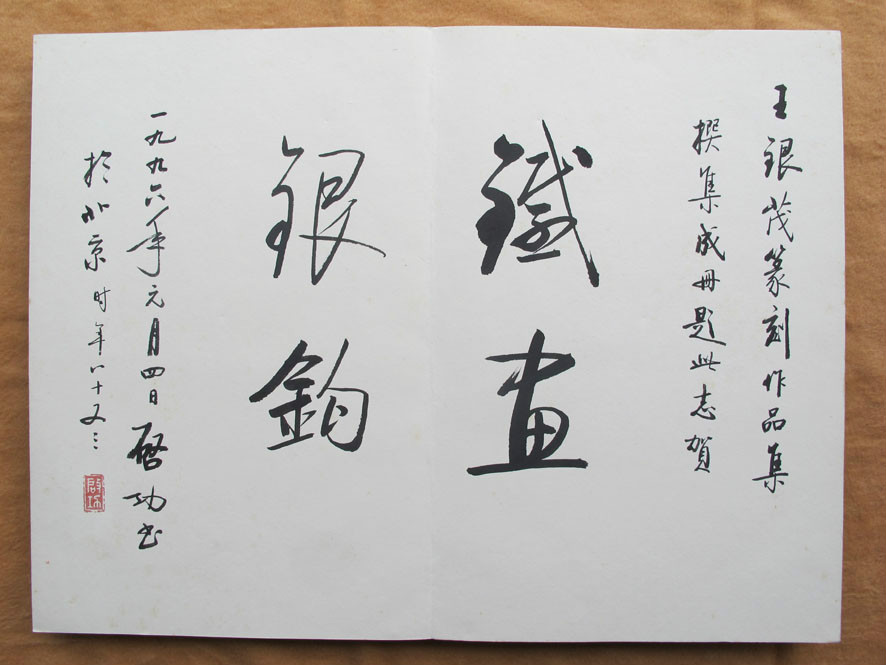 王銀茂篆刻作品集
撰集成冊題此志賀
鐵畫
銀鉤
一九九六年元月四日 啓功书
於北京时年八十又三
啓功